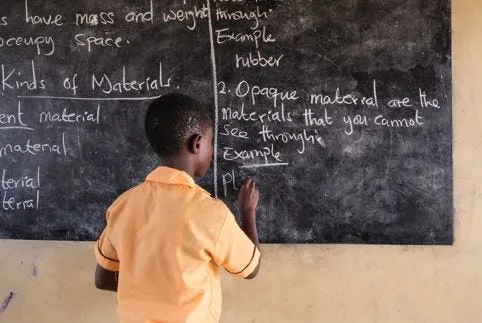 s have mass and weight
occupy Space.
Kinds of Materials.
ent material
material
terial
terral
through:
Example
rubber
2. Opaque material are the
materials that you cannot
see through:
Example
pl